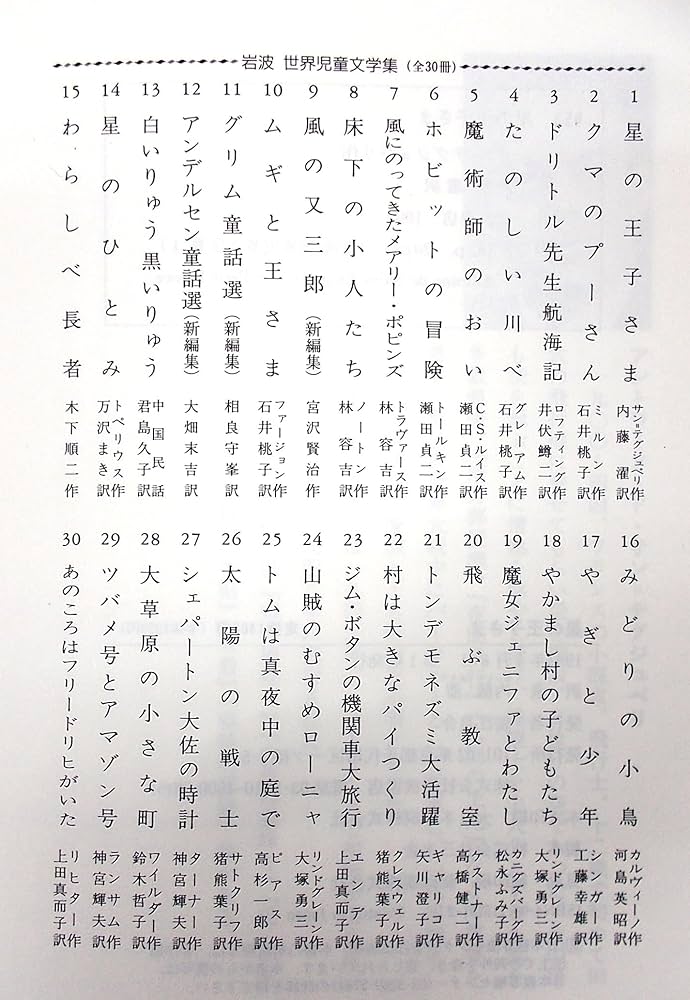 岩波 世界児童文学集（全30冊）
1 星の王子さま サン=テグジュペリ作 内藤濯訳
2 クマのプーさん ミルン作 石井桃子訳
3 ドリトル先生航海記 ロフティング作 井伏鱒二訳
4 たのしい川べ グレーアム作 石井桃子訳
5 魔術師のおい C・S・ルイス作 瀬田貞二訳
6 ホビットの冒険 トールキン作 瀬田貞二訳
7 風にのってきたメアリー・ポピンズ トラヴァース作 林容吉訳
8 床下の小人たち ノートン作 林容吉訳
9 風の又三郎（新編集） 宮沢賢治作
10 ムギと王さま ファージョン作 石井桃子訳
11 グリム童話選（新編集） 相良守峯訳
12 アンデルセン童話選（新編集） 大畑末吉訳
13 白いりゅう黒いりゅう 中国民話 君島久子訳
14 星のひとみ トペリウス作 万沢まき訳
15 わらしべ長者 木下順二作
16 みどりの小鳥 カルヴィーノ作 河島英昭訳
17 やぎと少年 シンガー作 工藤幸雄訳
18 やかまし村の子どもたち リンドグレーン作 大塚勇三訳
19 魔女ジェニファとわたし カニグズバーグ作 松永ふみ子訳
20 飛ぶ教室 ケストナー作 高橋健二訳
21 トンデモネズミ大活躍 ギャリコ作 矢川澄子訳
22 村は大きなパイつくり クレスウェル作 猪熊葉子訳
23 ジム・ボタンの機関車大旅行 エンデ作 上田真而子訳
24 山賊のむすめローニャ リンドグレーン作 大塚勇三訳
25 トムは真夜中の庭で ピアス作 高杉一郎訳
26 太陽の戦士 サトクリフ作 猪熊葉子訳
27 シェパートン大佐の時計 ターナー作 神宮輝夫訳
28 大草原の小さな町 ワイルダー作 鈴木哲子訳
29 ツバメ号とアマゾン号 ランサム作 神宮輝夫訳
30 あのころはフリードリヒがいた リヒター作 上田真而子訳